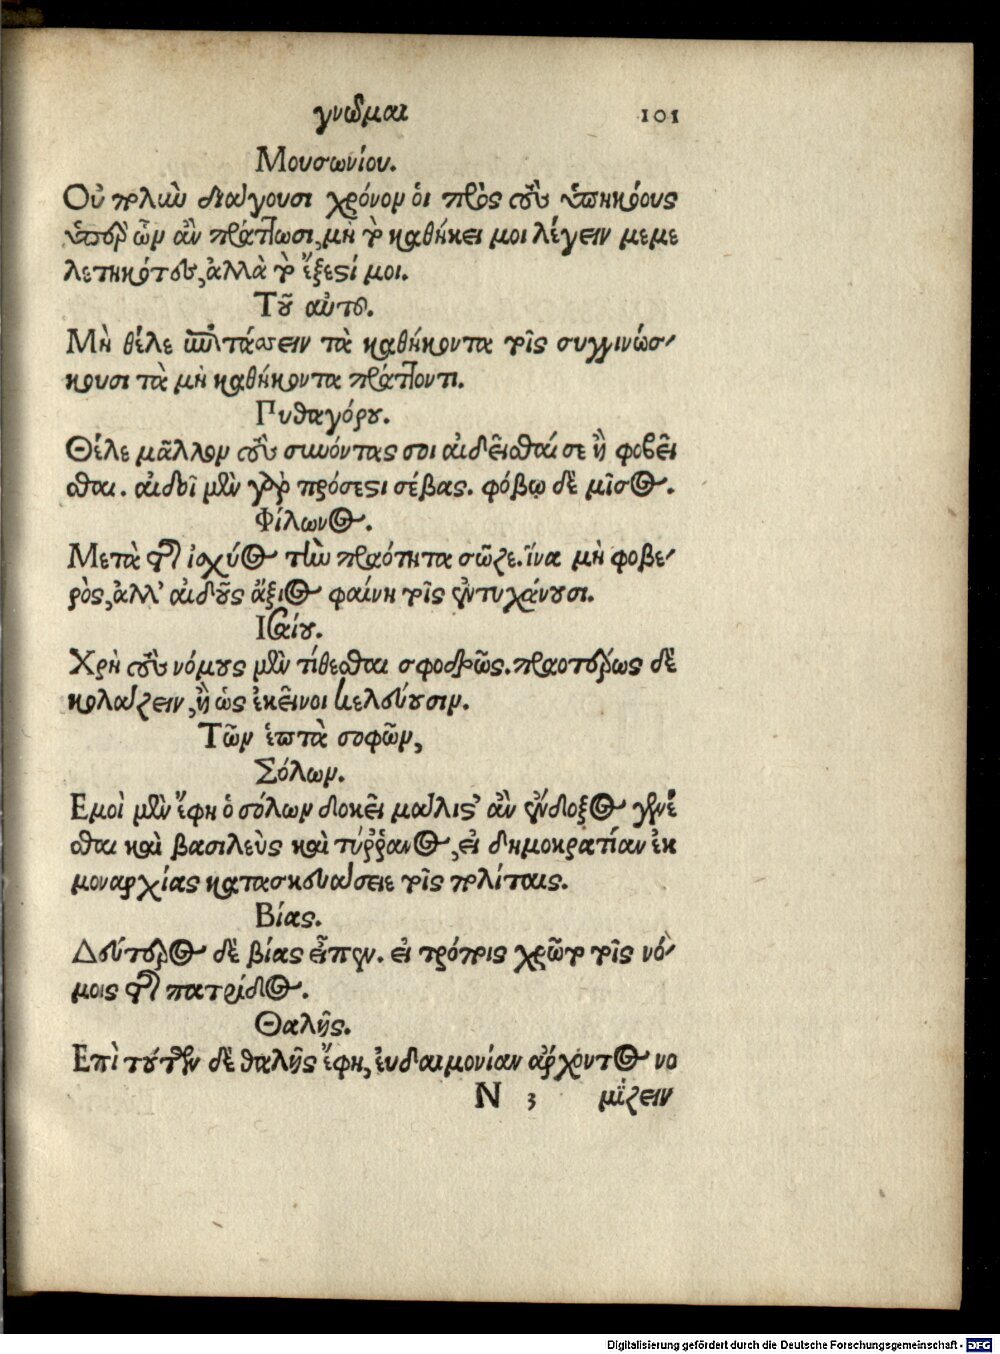 γνῶμαι 101
Μουσωνίου.
Οὐ πολὺν διάγουσι χρόνον οἱ πρὸς τοὺς ὑπηκόους
ὑπὲρ ὧν ἂν πράττωσι, μὴ τὸ καθήκει μοι λέγειν μεμε
λετηκότες, ἀλλὰ τὸ ἔξεστί μοι.
Τοῦ αὐτοῦ.
Μὴ θέλε ἐπιτάσσειν τὰ καθήκοντα τοῖς συγγινώσ-
κουσι τὰ μὴ καθήκοντα πράττοντι.
Πυθαγόρου.
Θέλε μᾶλλον τοὺς συνόντας σοι αἰδεῖσθαί σε ἢ φοβεῖ
σθαι. αἰδοῖ μὲν γὰρ πρόσεστι σέβας. φόβῳ δὲ μῖσος.
Φίλωνος.
Μετὰ τῆς ἰσχύος τὴν πραότητα σῶζε. ἵνα μὴ φοβε-
ρὸς, ἀλλ' αἰδοῦς ἄξιος φαίνη τοῖς ἐντυχάνουσι.
Ισαίου.
Χρὴ τοὺς νόμους μὲν τίθεσθαι σφοδρῶς. πραοτέρως δὲ
κολάζειν, ἢ ὡς ἐκεῖνοι κελεύουσιν.
Τῶν ἑπτὰ σοφῶν,
Σόλων.
Εμοὶ μὲν ἔφη ὁ σόλων δοκεῖ μάλιστ' ἂν ἔνδοξος γενέ
σθαι καὶ βασιλεὺς καὶ τύῤῥανος, εἰ δημοκρατίαν ἐκ
μοναρχίας κατασκευάσειε τοῖς πολίταις.
Βίας.
Δεύτερος δὲ βίας εἶπεν. εἰ τρόποις χρῶτο τοῖς νό-
μοις τῆς πατρίδος.
Θαλῆς.
Επὶ τούτῳ δὲ θαλῆς ἔφη, ἐυδαιμονίαν ἄρχοντος νο
N 3 μίζειν
Digitalisierung gefördert durch die Deutsche Forschungsgemeinschaft - DFG